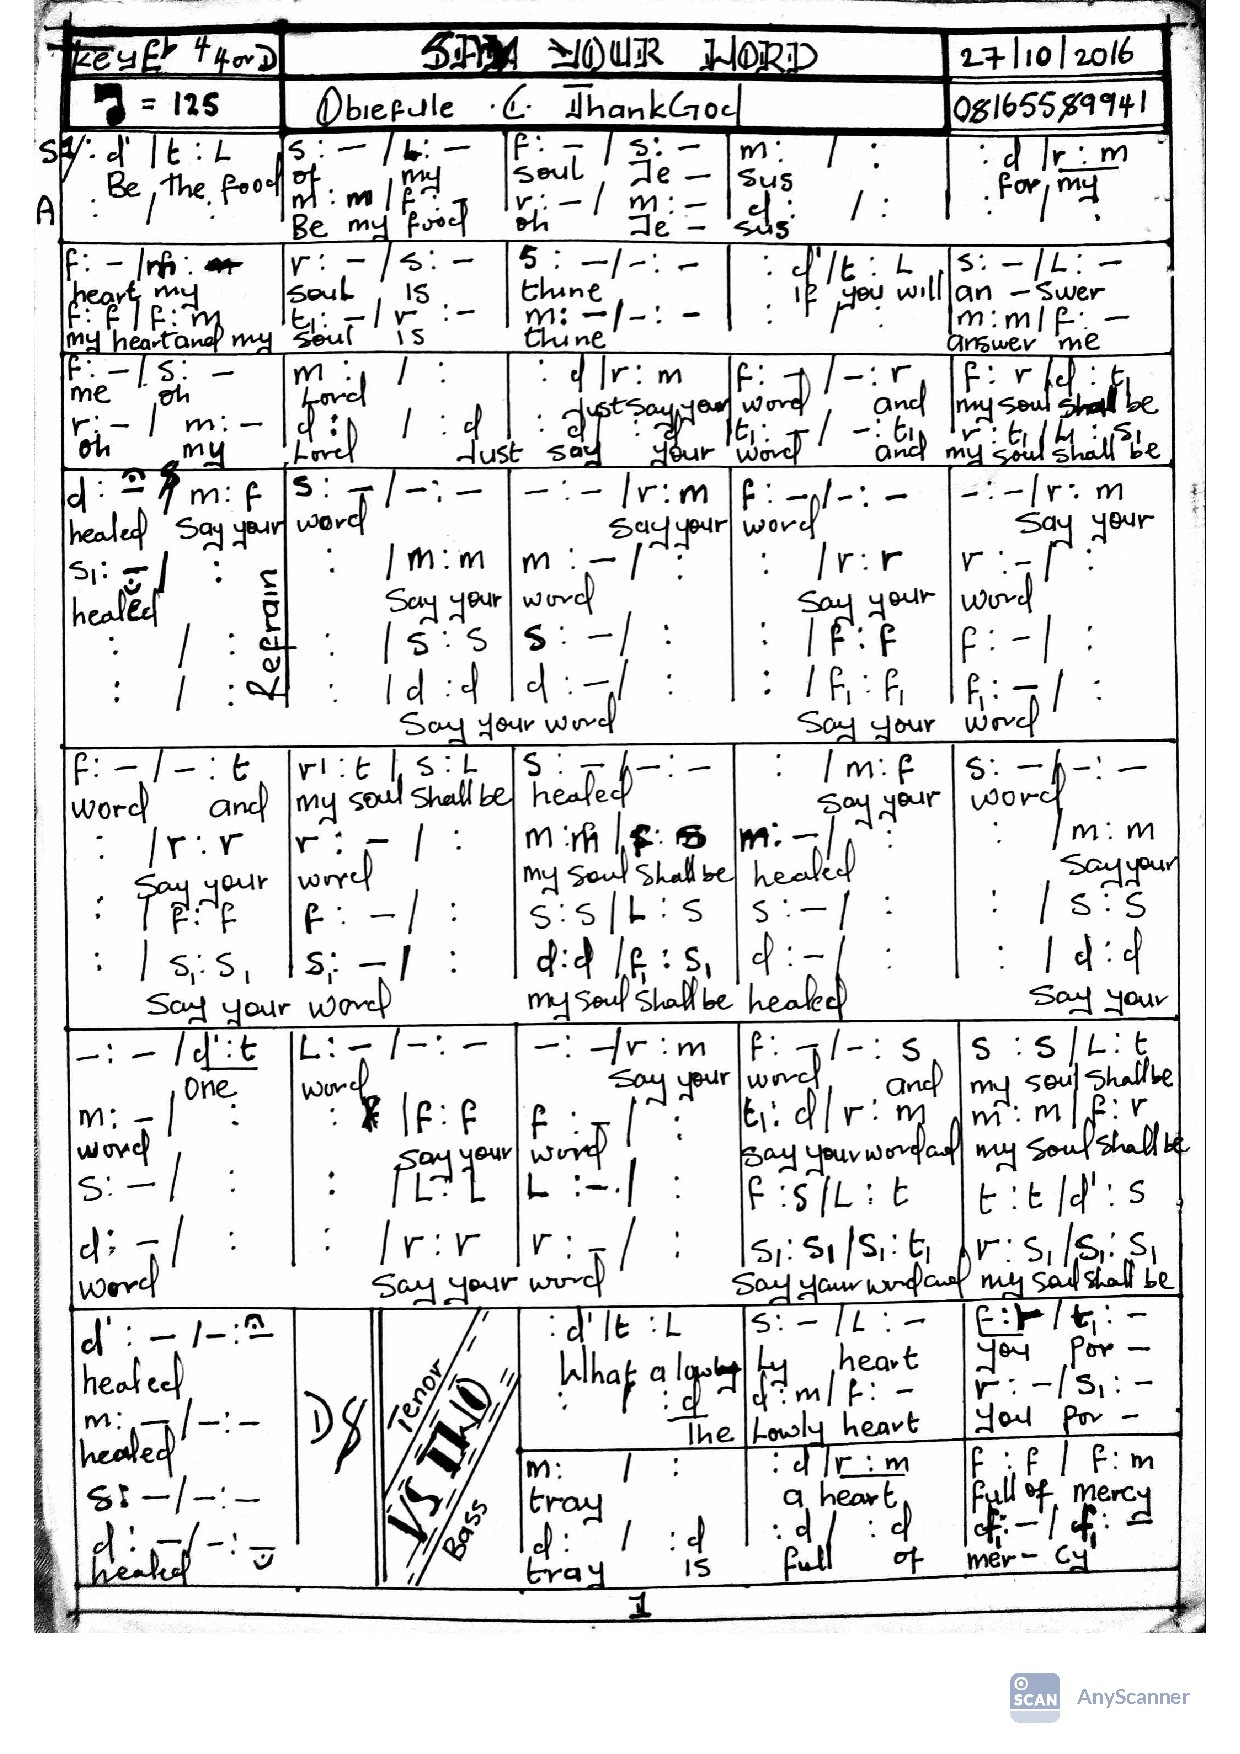 Key Eb 4/4 or D
SAY YOUR WORD
27/10/2016
= 125
Obiefule .C. ThankGod
08165589941
S V: d' / t : L | s : – / L : – | f : – / s : – | m : / : | : d / r : m
Be the food | of my | soul Je – | sus | for my
A : / : | m : m / f : – | r : – / m : – | d : / : | : / :
Be my food | oh Je – | sus
f : – / m : | r : – / s : – | s : – / – : – | : d' / t : L | s : – / L : –
heart my | soul is | thine | if you will | an – swer
f : f / f : m | t₁ : – / r : – | m : – / – : – | : / : | m : m / f : –
my heart and my | soul is | thine | answer me
f : – / s : – | m : / : | : d / r : m | f : – / – : r | f : r / d : t₁
me oh | Lord | Just say your | word and | my soul shall be
r : – / m : – | d : / : d | : d / : d | t₁ : – / – : t₁ | r : t₁ / L₁ : s₁
oh my | Lord Just | say your | word and | my soul shall be
d : – / m : f | s : – / – : – | – : – / r : m | f : – / – : – | – : – / r : m
healed Say your | word | Say your | word | Say your
s₁ : – / : | : / m : m | m : – / : | : / r : r | r : – / :
healed | Say your | word | Say your | word
Refrain
: / : | : / s : s | s : – / : | : / f : f | f : – / :
: / : | : / d : d | d : – / : | : / f₁ : f₁ | f₁ : – / :
Say your word | Say your word
f : – / – : t | r' : t / s : L | s : – / – : – | : / m : f | s : – / – : –
word and | my soul shall be | healed | Say your | word
: / r : r | r : – / : | m : m / f : s | m : – / : | : / m : m
Say your | word | my soul shall be | healed | Say your
: / f : f | f : – / : | s : s / L : s | s : – / : | : / s : s
: / s₁ : s₁ | s₁ : – / : | d : d / f₁ : s₁ | d : – / : | : / d : d
Say your word | my soul shall be healed | Say your
– : – / d' : t | L : – / – : – | – : – / r : m | f : – / – : s | s : s / L : t
one | word | Say your | word and | my soul shall be
m : – / : | : / f : f | f : – / : | t₁ : d / r : m | m : m / f : r
word | say your | word | say your word and | my soul shall be
s : – / : | : / L : L | L : – / : | f : s / L : t | t : t / d' : s
d : – / : | : / r : r | r : – / : | s₁ : s₁ / s₁ : t₁ | r : s₁ / s₁ : s₁
word | Say your word | Say your word and | my soul shall be
d' : – / – : –
healed
m : – / – : –
healed
s : – / – : –
d : – / – : –
healed
DS
Tenor
VS TWO
Bass
: d' / t : L | s : – / L : – | f : r / t₁ : –
What a lowly | ly heart | you por –
: / : d | d : m / f : – | r : – / s₁ : –
The | Lowly heart | you por –
m : / : | : d / r : m | f : f / f : m
tray | a heart | full of mercy
d : / : d | : d / : d | d : – / f₁ : –
tray is | full of | mer – cy
1
SCAN AnyScanner